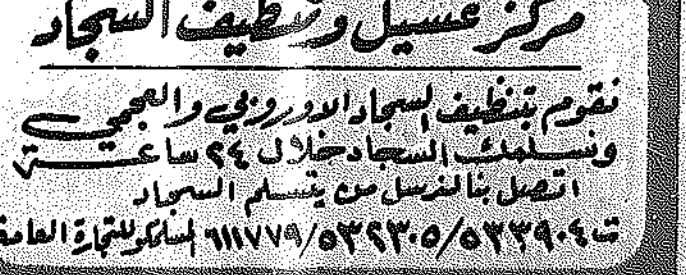 مركز غسيل وتنظيف السجاد
نقوم بتنظيف السجاد الاوروبي والعجمي
ونسلمك السجاد خلال ٢٤ ساعة
اتصل بنا لنرسل من يتسلم السجاد
ت ٥٣٣٩٠٤/٥٣٢٣٠٥/٦١١٧٧٩ للتجارة العامة